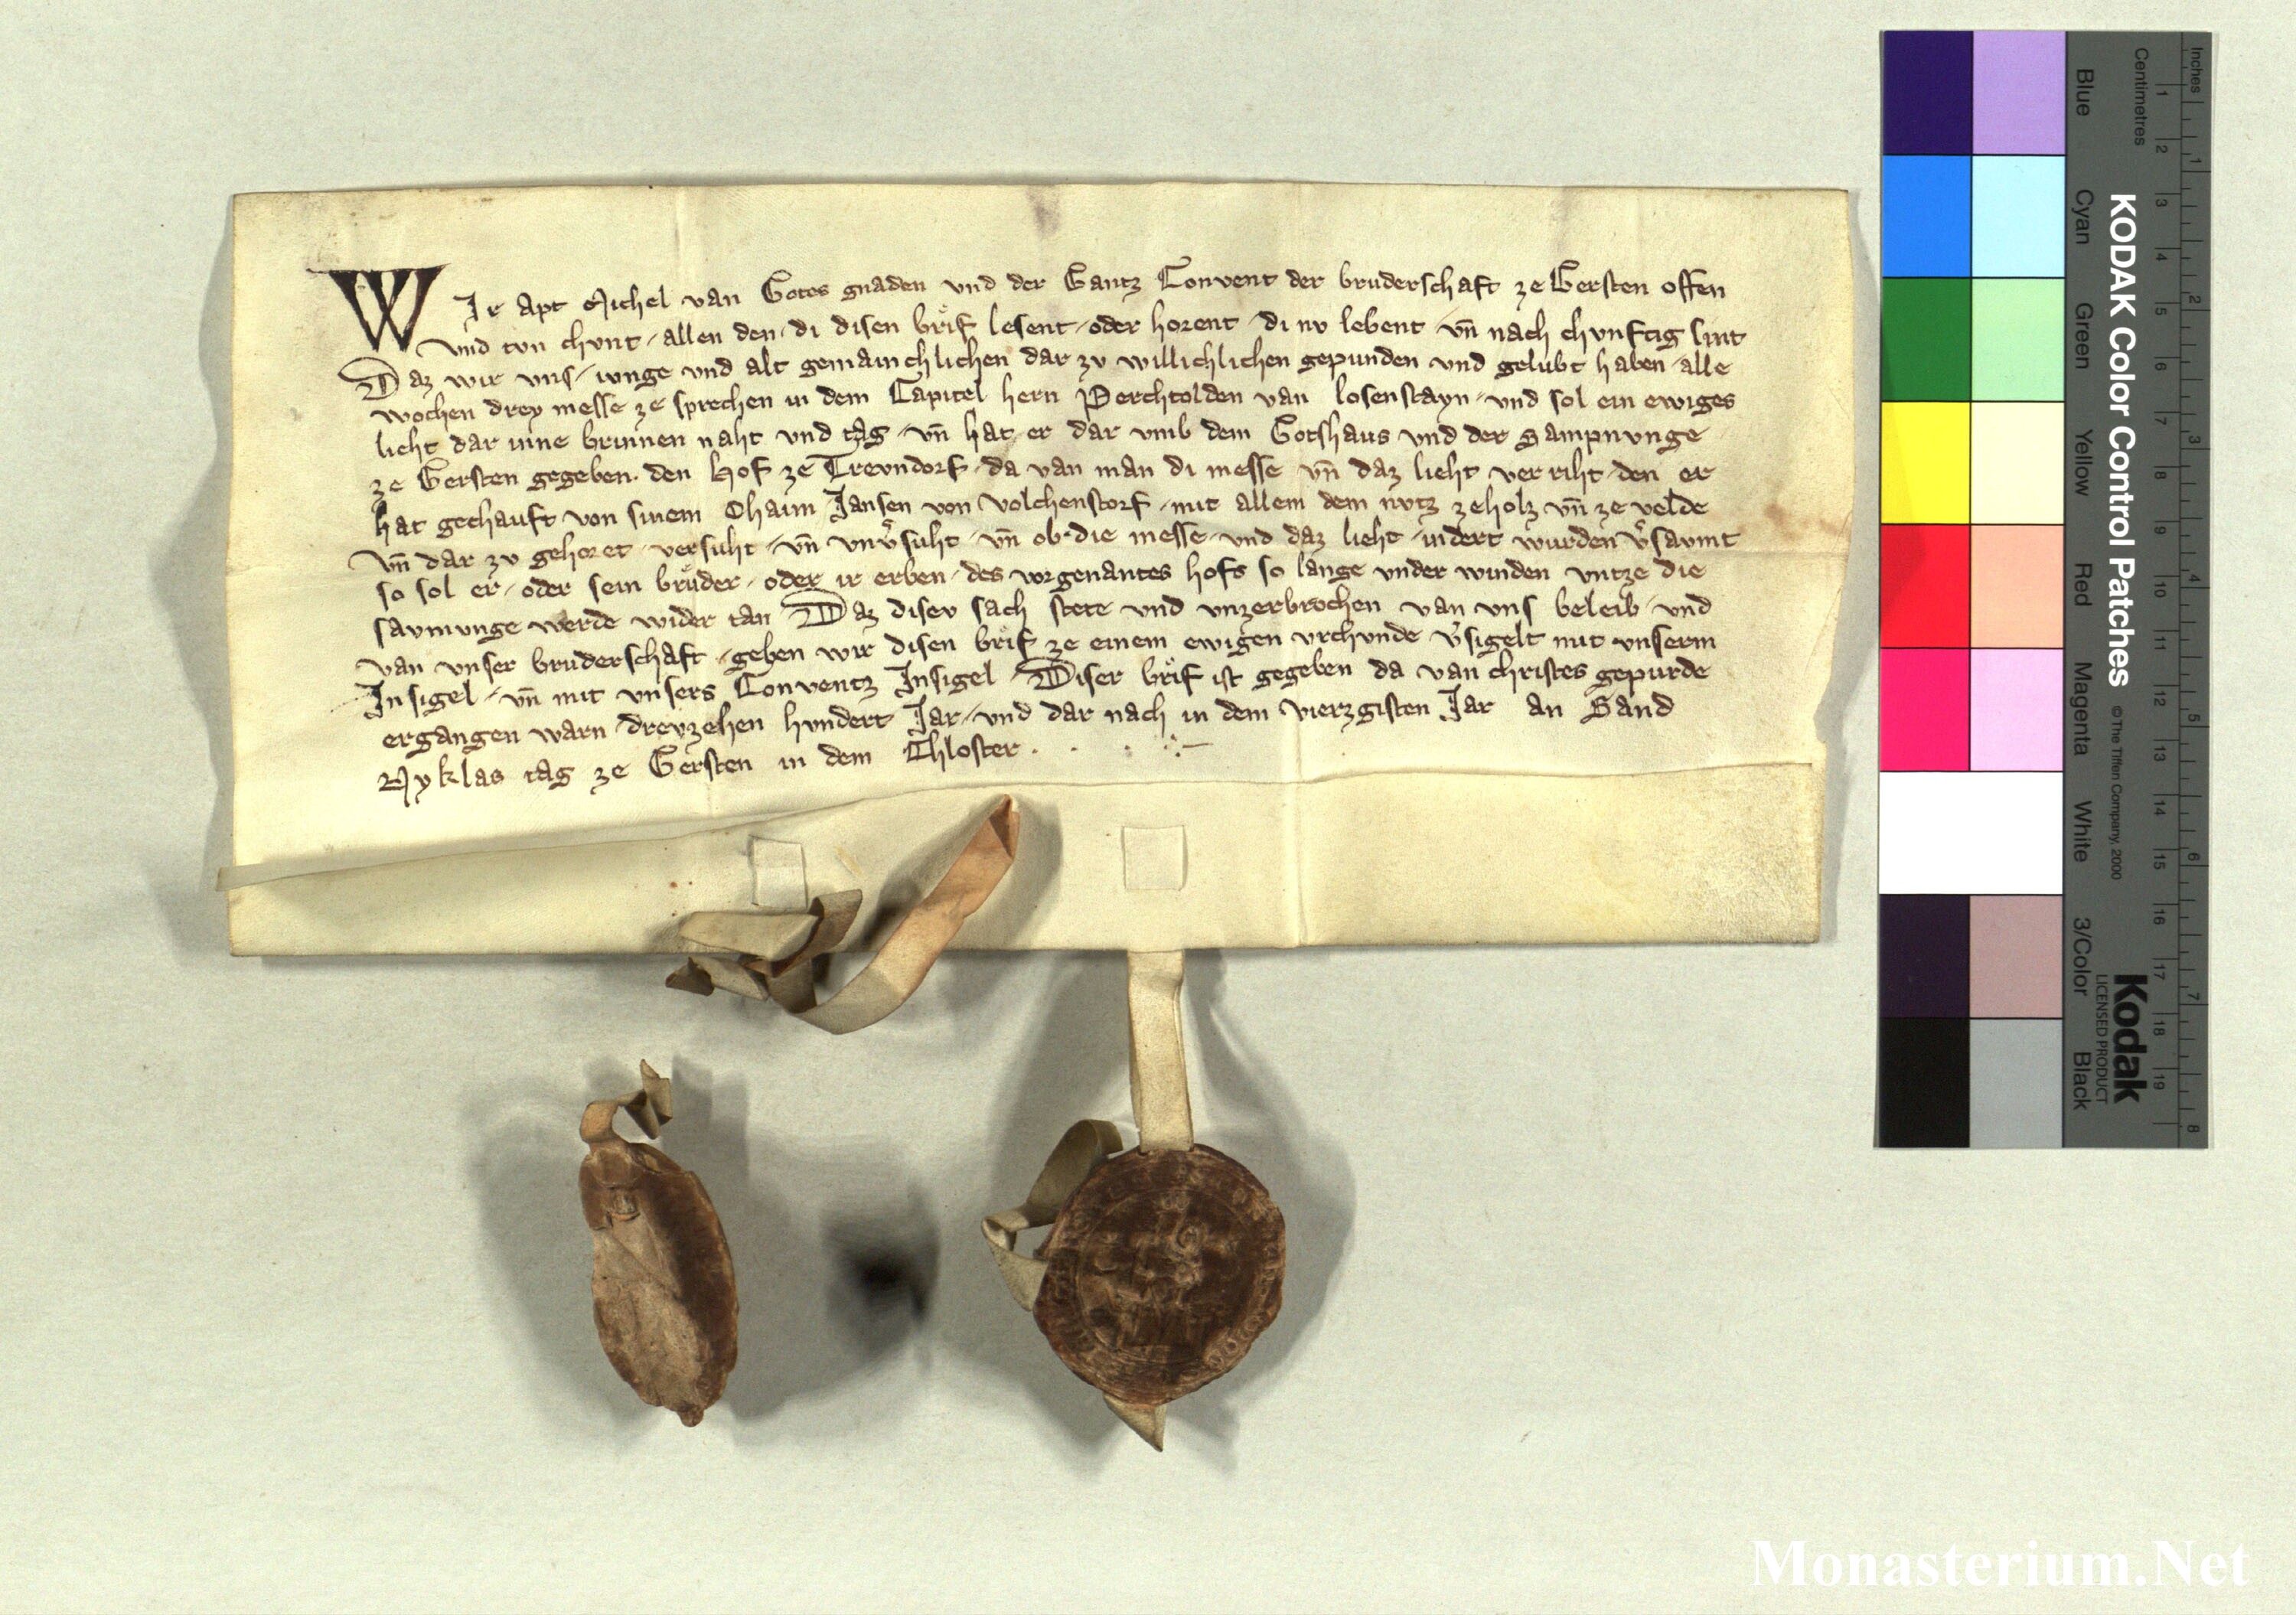 WIr apt Michel van Gotes gnaden vnd der Gantz Convent der bruderschaft ze Gersten offen
vnd tvn chvnt / allen den / di disen brif lesent / oder horent / di nv lebent / vn̄ nach chvnftig sint
Daz wir vns / iunge vnd alt gemainchlichen dar zv willichlichen gepunden vnd gelubt haben / alle
wochen drey messe ze sprechen in dem Capitel hern Perchtolden van losenstayn / vnd sol ein ewiges
lieht dar inne brinnen naht vnd tag / vn̄ hat er dar vmb dem Gotshaus vnd der Sampnvnge
ze Gersten gegeben. den Hof ze Trevndorf / da van man di messe vn̄ daz lieht ver riht / den er
hat gechauft von sinem Ohaim Jansen von Volchenstorf / mit allem dem nvtz ze holz vn̄ ze velde
vn̄ dar zv gehoret / versuht / vn̄ vnv͛suht / vn̄ ob die messe / vnd daz lieht / indert wurden v͛savmt
so sol er / oder sein brůder / oder ir erben / des vorgenantes hofs so lange vnder winden vntze die
savmvnge werde wider tan Daz disev sach stete vnd vnzerbrochen van vns beleib / vnd
van vnser bruderschaft / geben wir disen brif ze einem ewigen vrchvnde v͛sigelt mit vnserm
Insigel / vn̄ mit vnsers Conventz Insigel / Diser brif ist gegeben da van christes gepurde
ergangen warn drevzehen hvndert Jar / vnd dar nach in dem vierzgisten Jar an Sand
Nyklas tag ze Gersten in dem Chloster .
Inches
Centimetres
KODAK Color Control Patches
© The Tiffen Company, 2000
Kodak
LICENSED PRODUCT
Blue
Cyan
Green
Yellow
Red
Magenta
White
3/Color
Black
1 2 3 4 5 6 7 8 9 10 11 12 13 14 15 16 17 18 19
1 2 3 4 5 6 7 8
Monasterium.Net